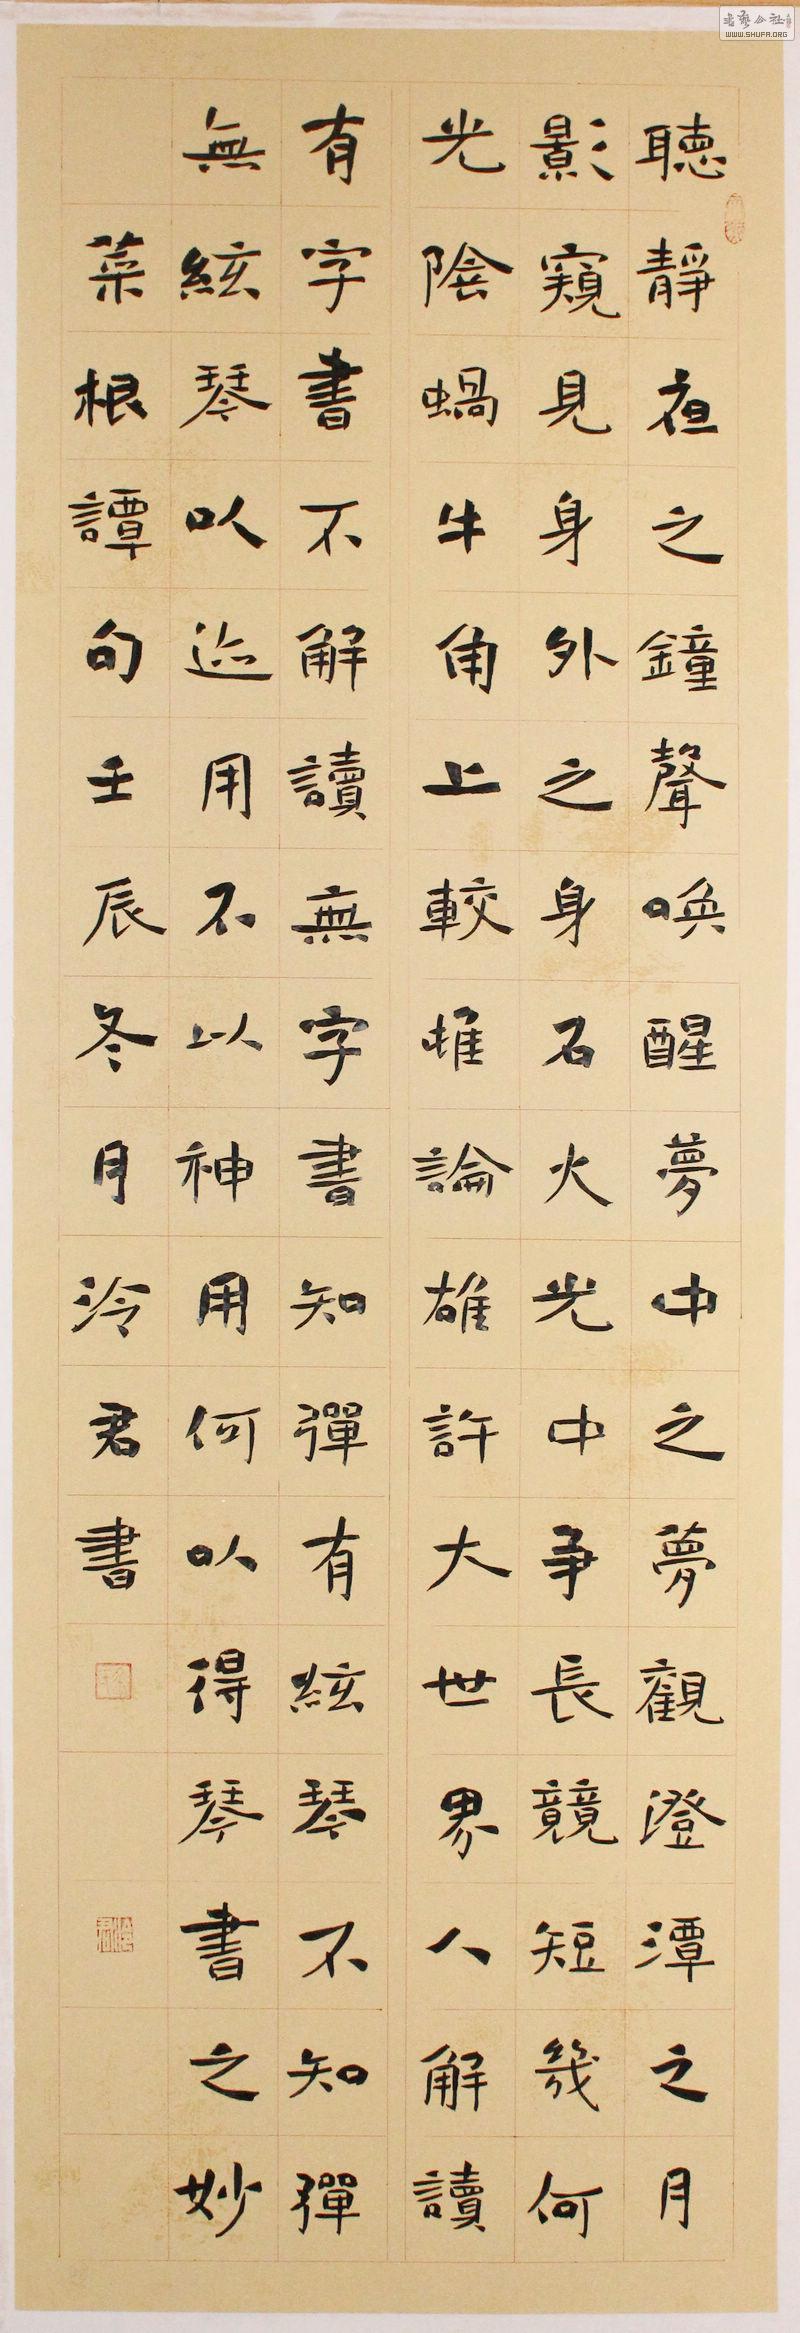 聽靜夜之鐘聲喚醒夢中之夢觀澄潭之月
影窺見身外之身石火光中爭長競短幾何
光陰蝸牛角上較雌論雄許大世界人解讀
有字書不解讀無字書知彈有絃琴不知彈
無絃琴以迹用不以神用何以得琴書之妙
菜根譚句壬辰冬月泠君書
书艺公社
WWW.SHUFA.ORG